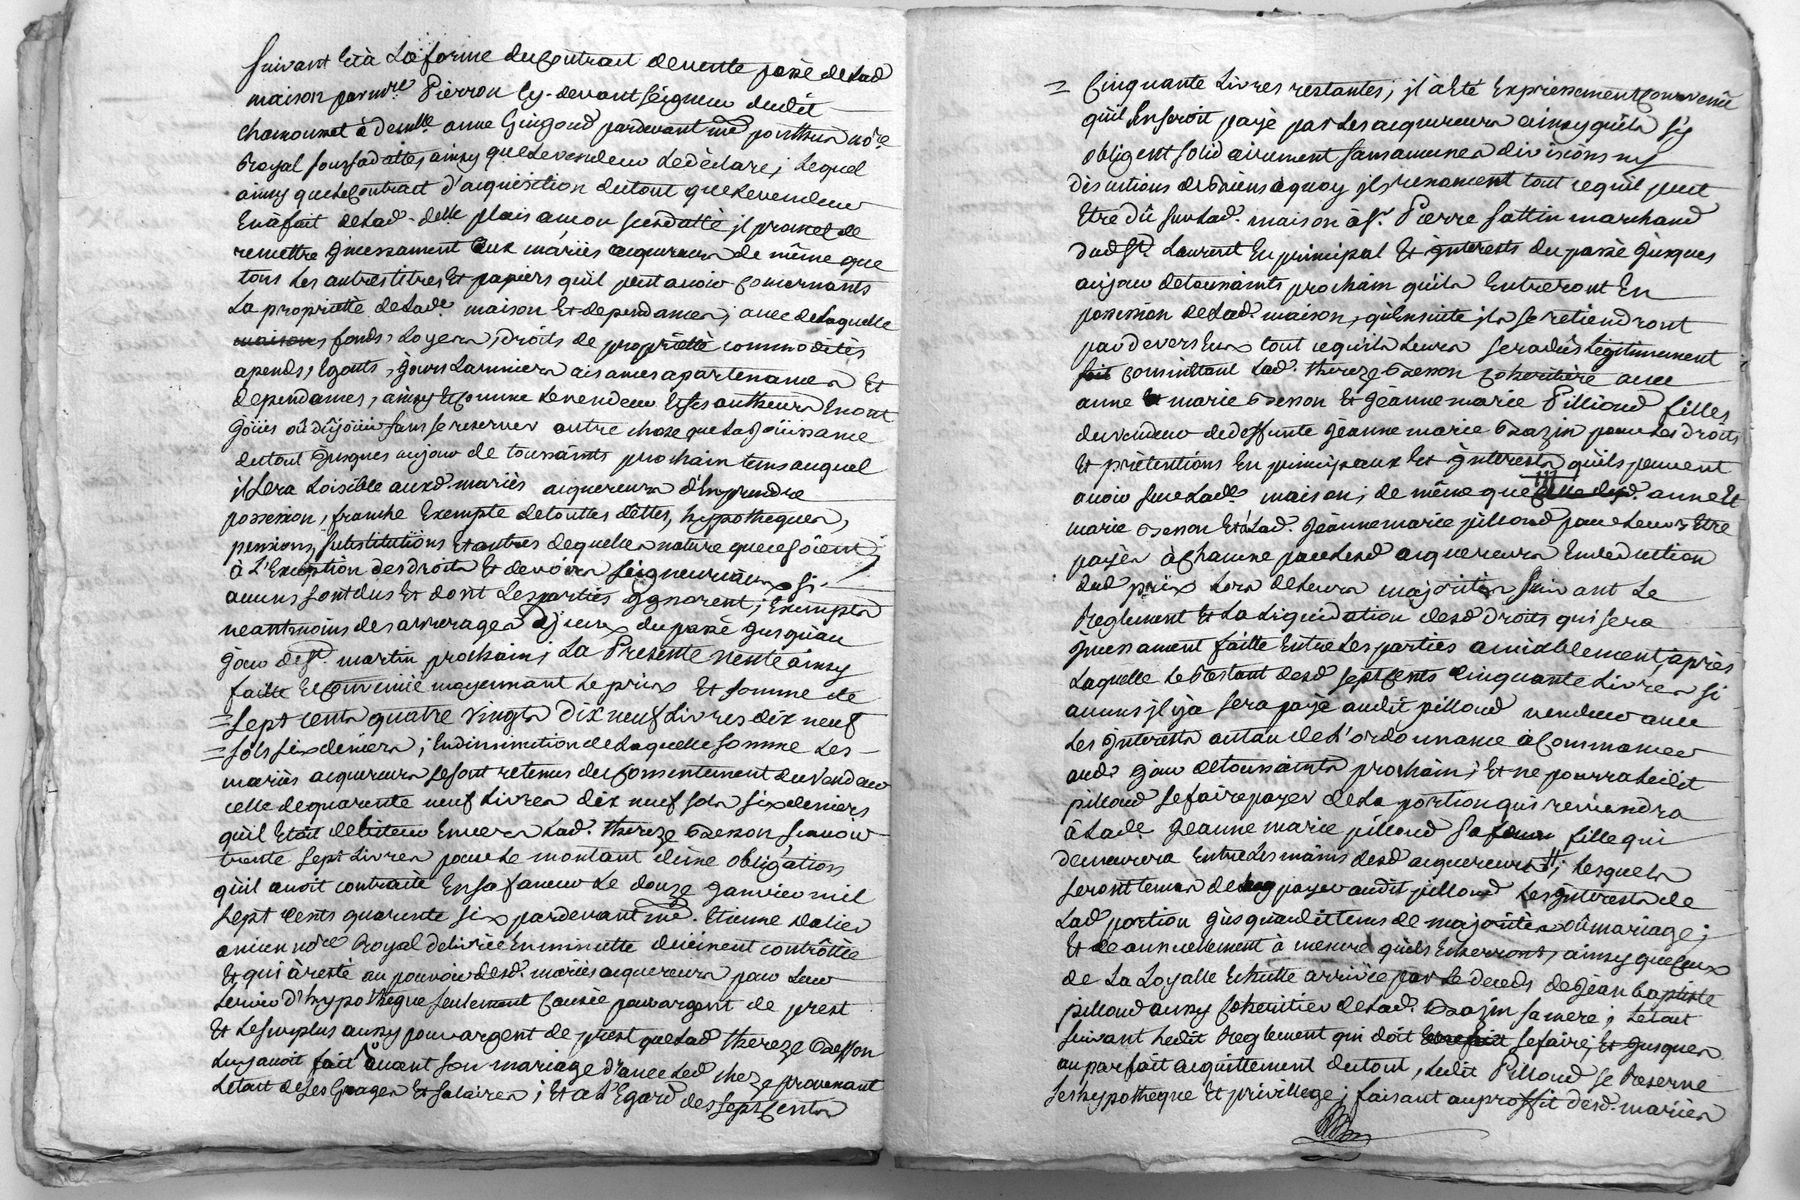 suivant Et à La forme du Contrat de vente passé de Lad
maison par mre Pierron Cy-devant seigneur dudit
Chamousset à demlle anne Gingoud pardevant me ponthus nore
Royal sous sa datte, ainsy que Le vendeur Le dèclare; Lequel
ainsy que Le Contrat d'acquisition du tout que Le vendeur
En à fait de Lad. delle plus amon sursdatte il promet de
remettre jncessament aux màriés acquereurs de même que
tous Les autres titres Et papiers quil peut avoir Concernants
La proprieté de Lade maison Et dependances; avec de Laquelle
fonds, Loyers, droits de proprièté commoditès
apends, Egouts, jours Larmiers aisances apartenances Et
dependances, ainsy Et Comme Le vendeur Et ses autheurs En ont
joüis où dû joüir sans se reserver autre chose que La joüissance
du tout jusques au jour de toussaints prochain tems auquel
il sera Loisible auxd. mariès acquereurs d'En prendre
possession, franche Exempte de touttes dettes, hypotheques,
pensions, substitutions Et autres de quelles nature que ce soient
à L'Exception des droits Et devoirs seigneuriaux si
aucuns sont dus Et dont Les parties jgnorent; Exempts
neantmoins des arrerages d'jceux du passè jusqu'au
jour de st. martin prochain; La Presente vente ainsy
faitte Et Convenüe moyennant Le prix Et somme de
= sept cents quatre vingts dix neuf Livres dix neuf
= sols six deniers; En diminution de Laquelle somme Les
mariès acquereurs se sont retenus du Consentement du vendeur
celle de quarante neuf Livres dix neuf sols six deniers
quil Etoit debiteur Envers Lad. thereze Besson sçavoir
trente sept Livres pour Le montant d'une obligation
qu'il avoit contractè En sa faveur Le douze janvier mil
sept cents quarente six pardevant me. Etienne
ancien nore Royal delivrée En minutte düement contrôllèe
Et qui à resté au pouvoir desd. mariès acquereurs pour Leur
servir d'hypotheque seulement Causèe pour argent de prest
Et Le surplus aussy pour argent de prest que Lad thereze Besson
Luy avoit fait avant son mariage d'avec Led chez Le provenant
Le tout de ses Gages Et salaires; Et à L'Egard des sept Cents
= Cinquante Livres restantes; jl à Eté Expressement Convenüe
qu'il En seroit payè par Les acquereurs ainsy qu'ils s'y
obligent solidairement sans aucunes divisions ny
discutions de biens à quoy jls renoncent tout ce qu'il peut
Etre dû sur Lad. maison à sr. Pierre sattin marchand
dud st Laurent En principal Et jnterests du passè jusques
au jour de toussaints prochain qu'ils Entreront En
possession de Lad. maison, qu'Ensuite jls se retiendront
par devers Eux tout ce qu'ils Leurs sera dû Lègitimement
Consistant Lad. thereze Besson Coheritière avec
anne marie Besson Et jeanne marie Pilliond filles
du vendeur de deffunte jeanne marie Bazin pour Les droits
Et prètentions En principaux Et jnterests qu'ils peuvent
avoir sur Lade. maison; de même que anne Et
marie Besson Et à Lad. jeanne marie pilloud pour Leurs Etre
payès à Chacune par Lesd acquereurs En deduction
dud prix Lors de Leurs majorités suivant Le
Reglement Et La Liquidation desd droits qui sera
jncessament faitte Entre Les parties amiablement; après
Laquelle Le Restant desd sept Cents Cinquante Livres si
aucuns jl y à sera payè audit pilloud vendeur avec
Les jnterests au taux de L'ordonnance à Commancer
aud. jour de toussaints prochain; Et ne pourra Ledit
pilloud se faire payer de La portion qui reviendra
à Lade. jeanne marie pilloud sa fille qui
demeurera Entre Les mains desd acquereurs; Lesquels
seront tenus de payer audit pilloud Les jnterests de
Lad portion jusqu'audit tems de majorité où mariage;
Et ce annuellement à mesure qu'ils Echerront, ainsy que Ceux
de La Loyalle Echutte arrivèe par Le decès de jean baptiste
pilloud aussy Coheritier de Lad. Bazin sa mere; Le tout
suivant Ledit Reglement qui doit se faire; Et jusques
au parfait acquittement du tout, Ledit Pilloud se Reserve
ses hypotheque Et privillege; faisant au proffit desd. mariès